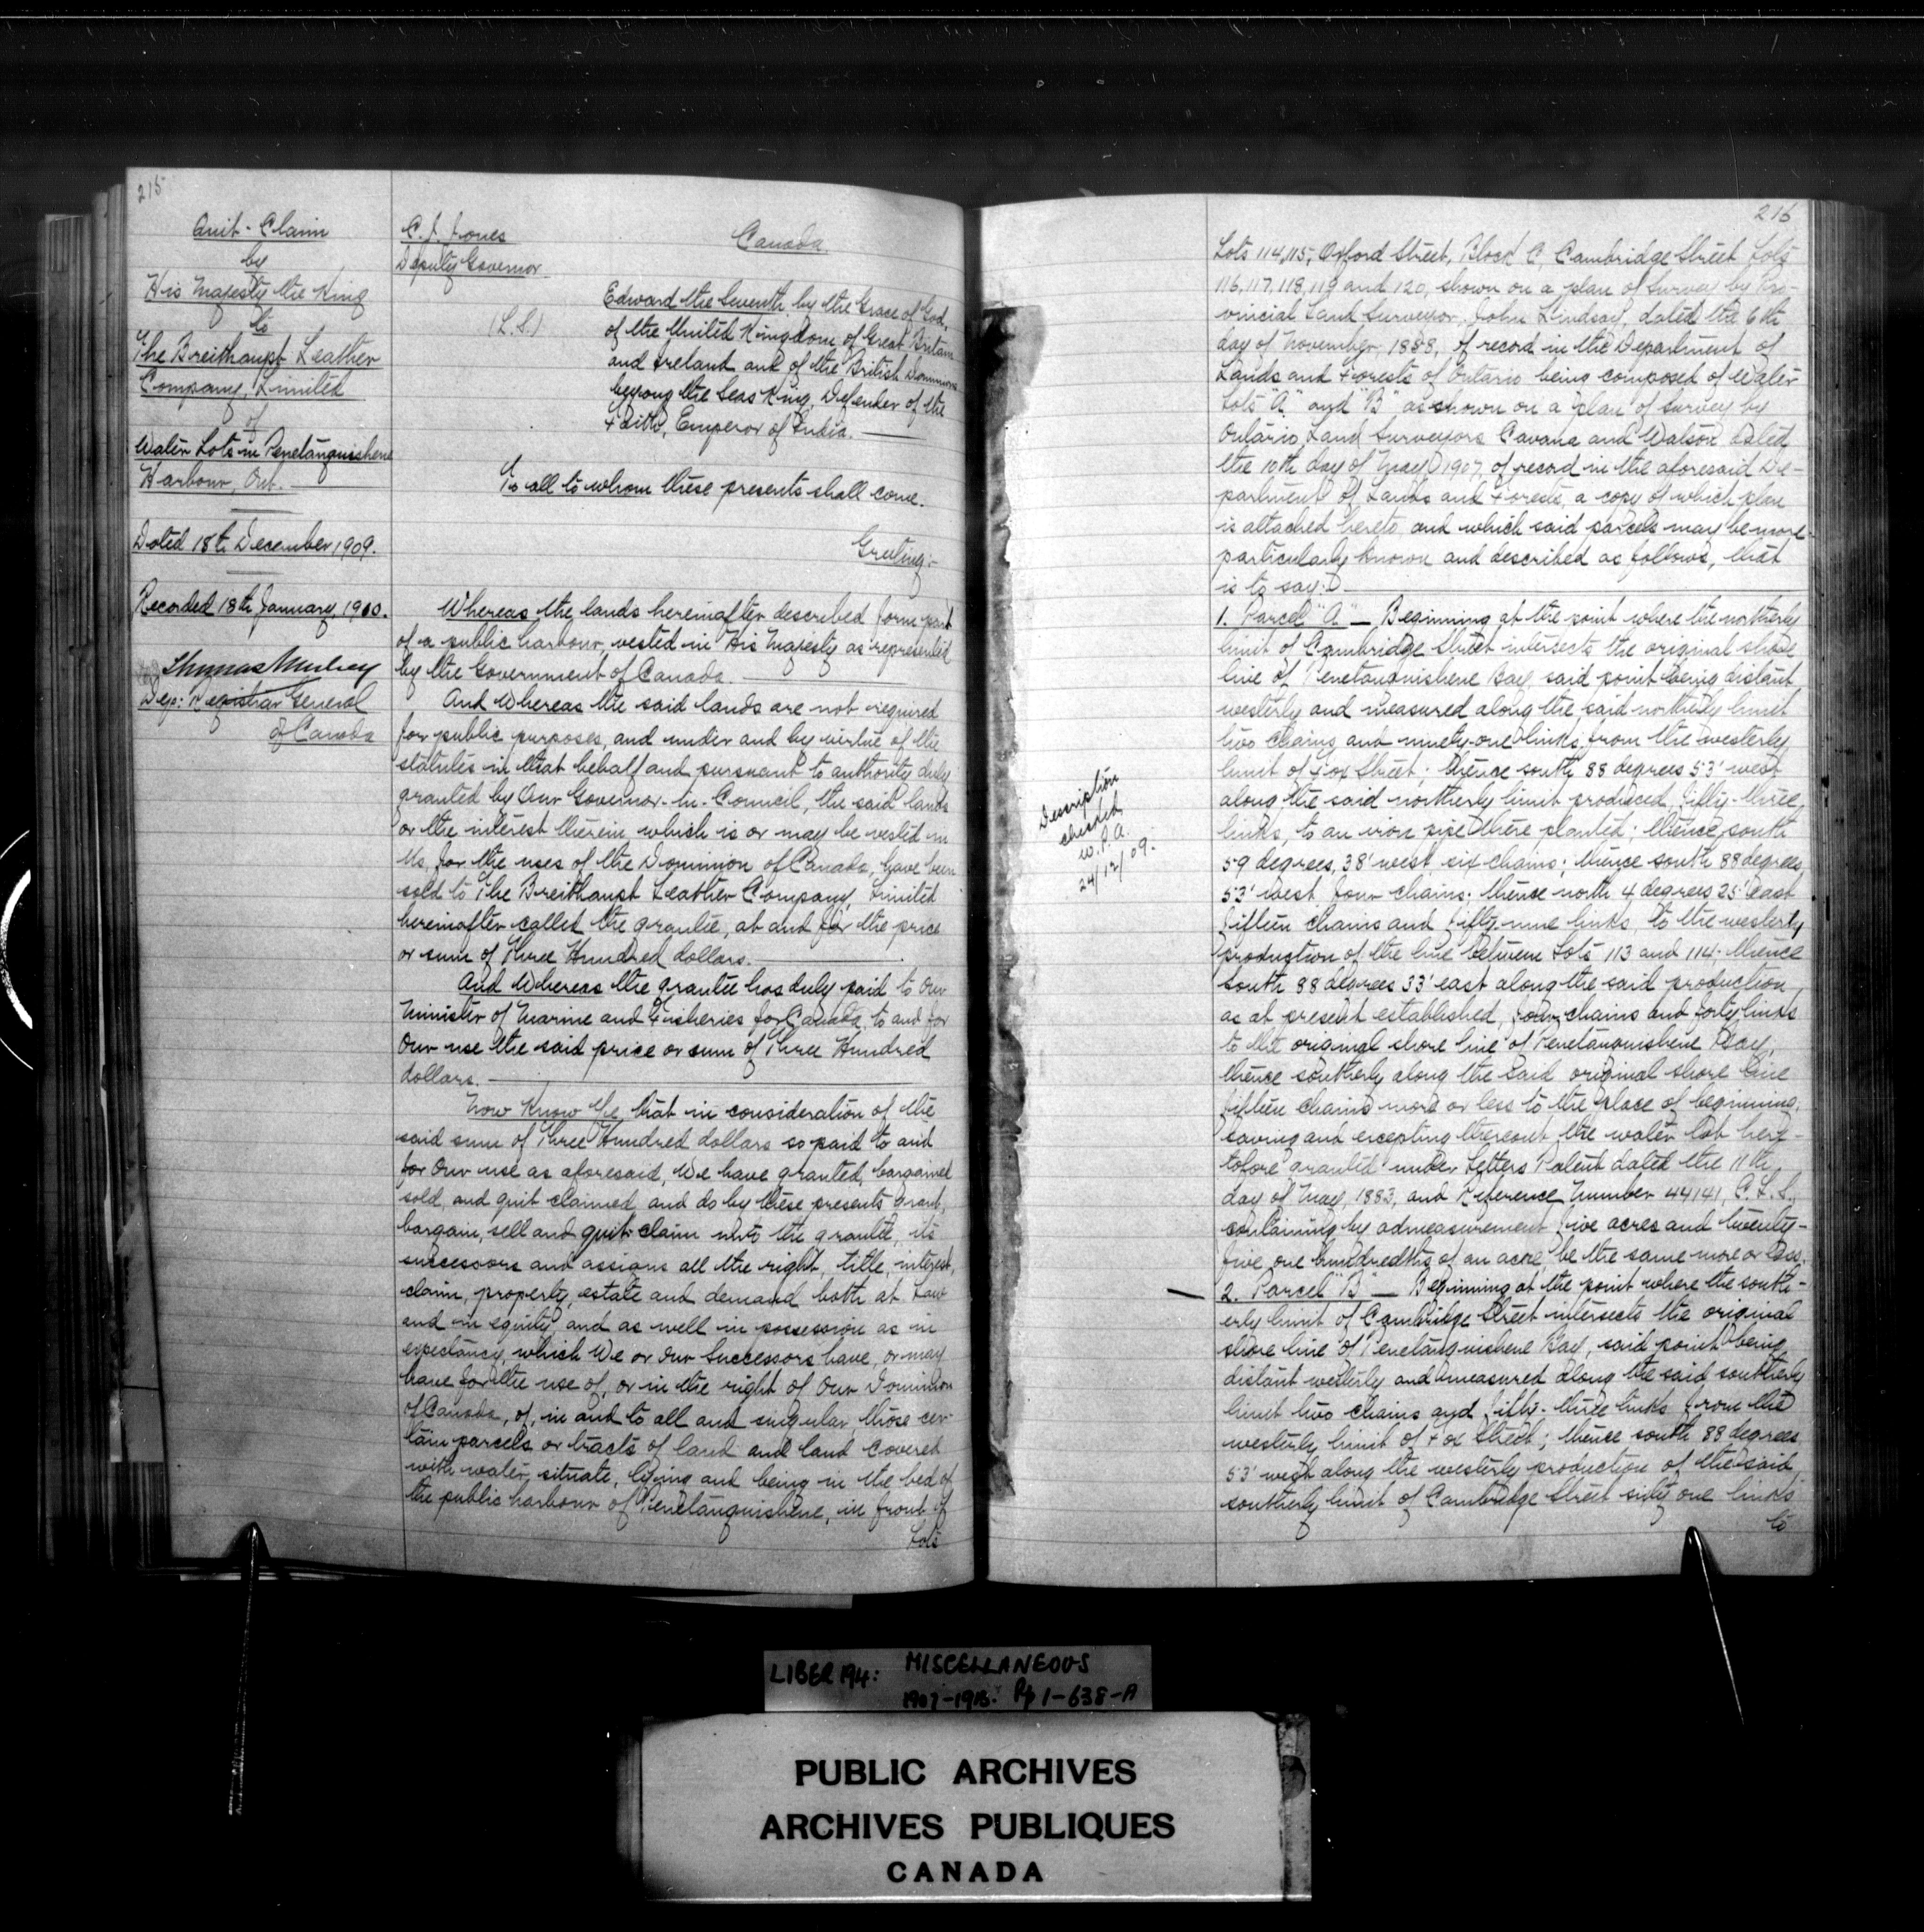 215
Quit-Claim
by
His Majesty the King
to
The Breithaupt Leather
Company, Limited
of
Water Lots in Penetanguishene
Harbour, Ont.
Dated 18th December 1909.
Recorded 18th January, 1910.
Thomas Mulvey
Dep: Registrar General
of Canada
C. J. Jones
Deputy Governor
(L.S.)
Canada.
Edward the Seventh, by the Grace of God,
of the United Kingdom of Great Britain
and Ireland and of the British Dominions
beyong the Seas King, Defender of the
Faith, Emperor of India.
To all to whom these presents shall come.
Greeting:-
Whereas the lands hereinafter described form part
of a public harbour, vested in His Majesty as represented
by the Government of Canada.
And Whereas the said lands are not required
for public purposes, and under and by virtue of the
statutes in that behalf and pursuant to authority duly
granted by Our Governor-in-Council, the said lands
or the interest therein which is or may be vested in
Us, for the uses of the Dominion of Canada, have been
sold to The Breithaupt Leather Company, Limited
hereinafter called the grantee, at and for the price
or sum of Three Hundred dollars.
And Whereas the grantee has duly paid to Our
Minister of Marine and Fisheries for Canada, to and for
Our use the said price or sum of Three Hundred
dollars.
Now Know Ye that in consideration of the
said sum of Three Hundred dollars so paid to and
for Our use as aforesaid, We have granted, bargained
sold, and quit claimed, and do by these presents grant,
bargain, sell and quit claim unto the grantee, its
successors and assigns all the right, title, interest,
claim, property, estate and demand both at Law
and in equity and as well in possession as in
expectancy, which We or Our Successors have, or may
have for the use of, or in the right of Our Dominion
of Canada, of, in and to all and singular, those cer-
tain parcels or tracts of land and land covered
with water, situate, lying and being in the bed of
the public harbour of Penetanguishene, in front of
Lots
216
Lots 114, 115, Oxford Street, Block C, Cambridge Street Lots
116, 117, 118, 119 and 120, shown on a plan of survey by Pro-
vincial Land Surveyor, John Lindsay, dated the 6th
day of November, 1888, of record in the Department of
Lands and Forests of Ontario being composed of Water
Lots "A" and "B" as shown on a plan of survey by
Ontario Land Surveyors Cavana and Watson dated
the 10th day of May 1907, of record in the aforesaid De-
partment of Lands and Forests, a copy of which plan
is attached hereto and which said parcels may be more
particularly known and described as follows, that
is to say:
1. Parcel "A" — Beginning at the point where the northerly
limit of Cambridge Street intersects the original shore
line of Penetanguishene Bay, said point being distant
westerly and measured along the said northerly limit
two chains and ninety-one links from the westerly
limit of Fox Street; thence south 88 degrees 53' west
along the said northerly limit produced, fifty-three
links, to an iron pipe there planted; thence south
59 degrees, 38' west, six chains; thence south 88 degrees,
53' west four chains; thence north 4 degrees 25' east
fifteen chains and fifty-nine links, to the westerly
production of the line between Lots 113 and 114; thence
south 88 degrees 33' east along the said production,
as at present established, four chains and forty links
to the original shore line of Penetanguishene Bay;
thence southerly along the said original shore line
fifteen chains more or less to the place of beginning;
saving and excepting thereout the water lot here-
tofore granted under Letters Patent dated the 11th
day of May, 1883, and Reference Number 44141, C.L.S.,
containing by admeasurement five acres and twenty-
five one hundredths of an acre, be the same more or less.
2. Parcel "B" — Beginning at the point where the south-
erly limit of Cambridge Street intersects the original
shore line of Penetanguishene Bay, said point being
distant westerly and measured along the said southerly
limit two chains and fifty-three links from the
westerly limit of Fox Street; thence south 88 degrees
53' west along the westerly production of the said
southerly limit of Cambridge Street sixty one links
to
Description
checked
W.P.A.
24/12/09.
LIBER 194: MISCELLANEOUS
1907-1913. Pp 1-638-A
PUBLIC ARCHIVES
ARCHIVES PUBLIQUES
CANADA